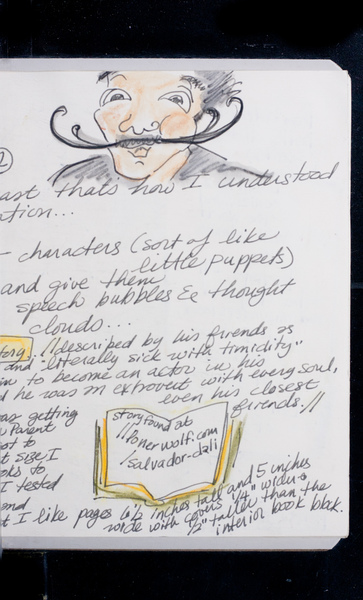 2
that's how I understood
ation...
- characters (sort of like
little puppets)
and give them
speech bubbles & thought
clouds...
tory // "described by his friends as
and "literally sick with timidity"
to become an actor in his
he was an extrovert with every soul,
even his closest
friends. //
was getting
Parent
ot to
t size I
oks to,
I tested
and
story found at
//lonerwolf.com
/salvador-dali
t I like pages 6½ inches tall and 5 inches
wide with covers 1/4" wider &
½" taller than the
interior book block.